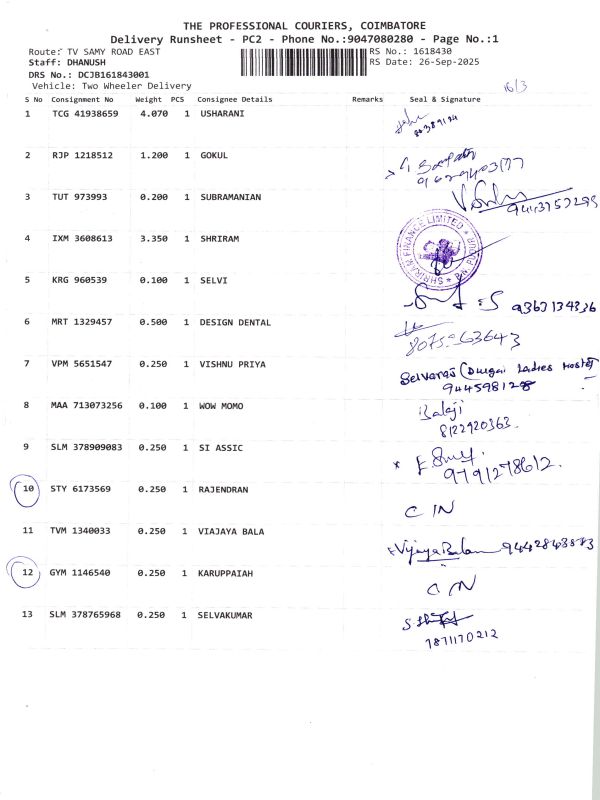 THE PROFESSIONAL COURIERS, COIMBATORE
Delivery Runsheet - PC2 - Phone No.:9047080280 - Page No.:1
Route: TV SAMY ROAD EAST RS No.: 1618430
Staff: DHANUSH RS Date: 26-Sep-2025
DRS No.: DCJB161843001
Vehicle: Two Wheeler Delivery 16/3
S No Consignment No Weight PCS Consignee Details Remarks Seal & Signature
1 TCG 41938659 4.070 1 USHARANI
2 RJP 1218512 1.200 1 GOKUL
3 TUT 973993 0.200 1 SUBRAMANIAN
9443757299
4 IXM 3608613 3.350 1 SHRIRAM
SHRIRAM FINANCE LIMITED
5 KRG 960539 0.100 1 SELVI
9363134336
6 MRT 1329457 0.500 1 DESIGN DENTAL
7 VPM 5651547 0.250 1 VISHNU PRIYA
Selvarag (Durgai Ladies Hostel
944598128
8 MAA 713073256 0.100 1 WOW MOMO
Balaji
8122920363.
9 SLM 378909083 0.250 1 SI ASSIC
9791278612.
10 STY 6173569 0.250 1 RAJENDRAN
C IN
11 TVM 1340033 0.250 1 VIAJAYA BALA
Vijaya Balan 9442843883
12 GYM 1146540 0.250 1 KARUPPAIAH
C IN
13 SLM 378765968 0.250 1 SELVAKUMAR
7871170212